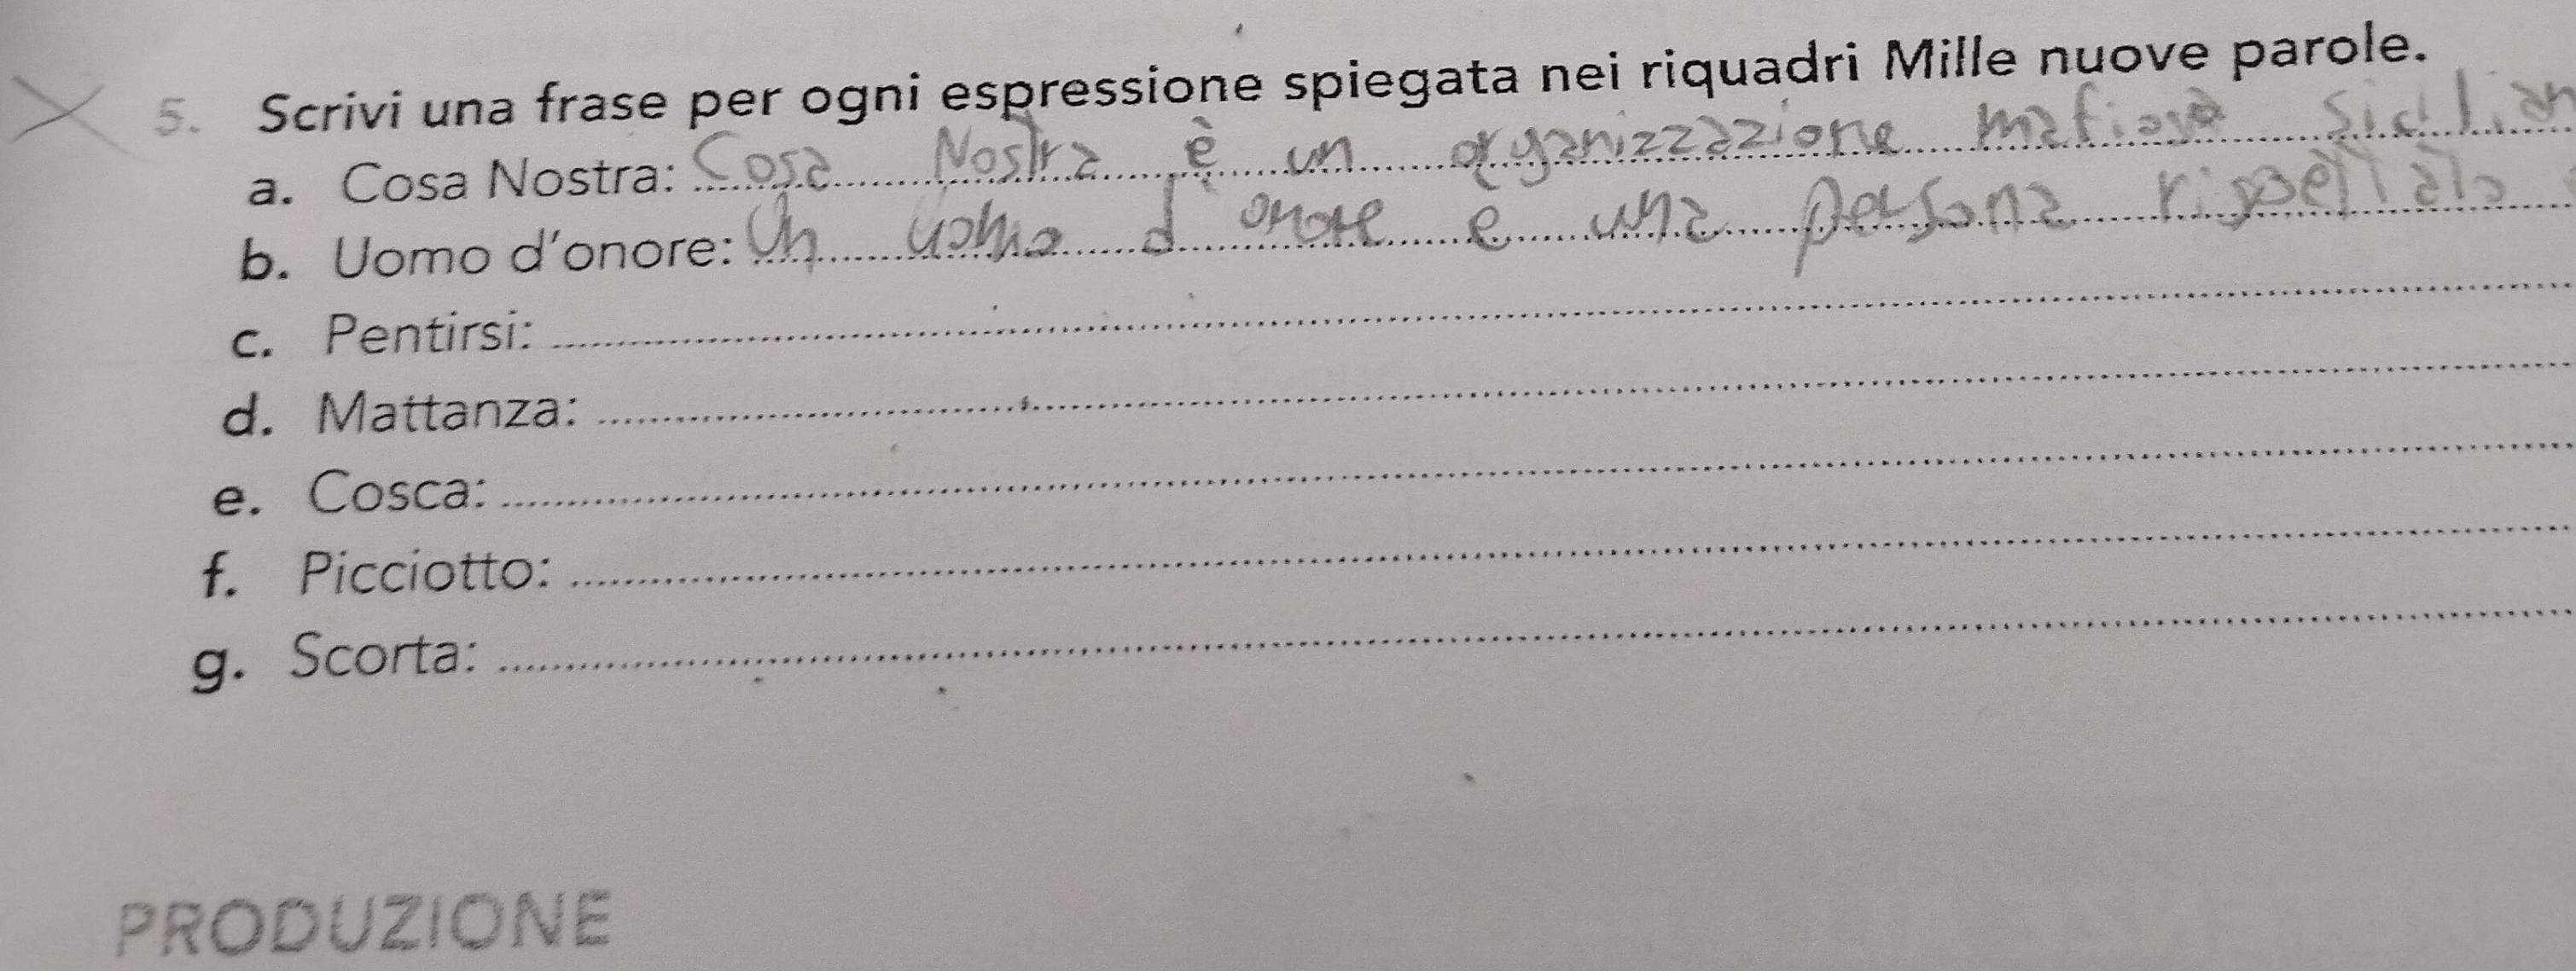 5. Scrivi una frase per ogni espressione spiegata nei riquadri Mille nuove parole.
a. Cosa Nostra: Cosa Nostra è un organizzazione mafiosa sicilian
b. Uomo d'onore: Un uomo d'onore e una persona rispettata
c. Pentirsi:
d. Mattanza:
e. Cosca:
f. Picciotto:
g. Scorta:
PRODUZIONE